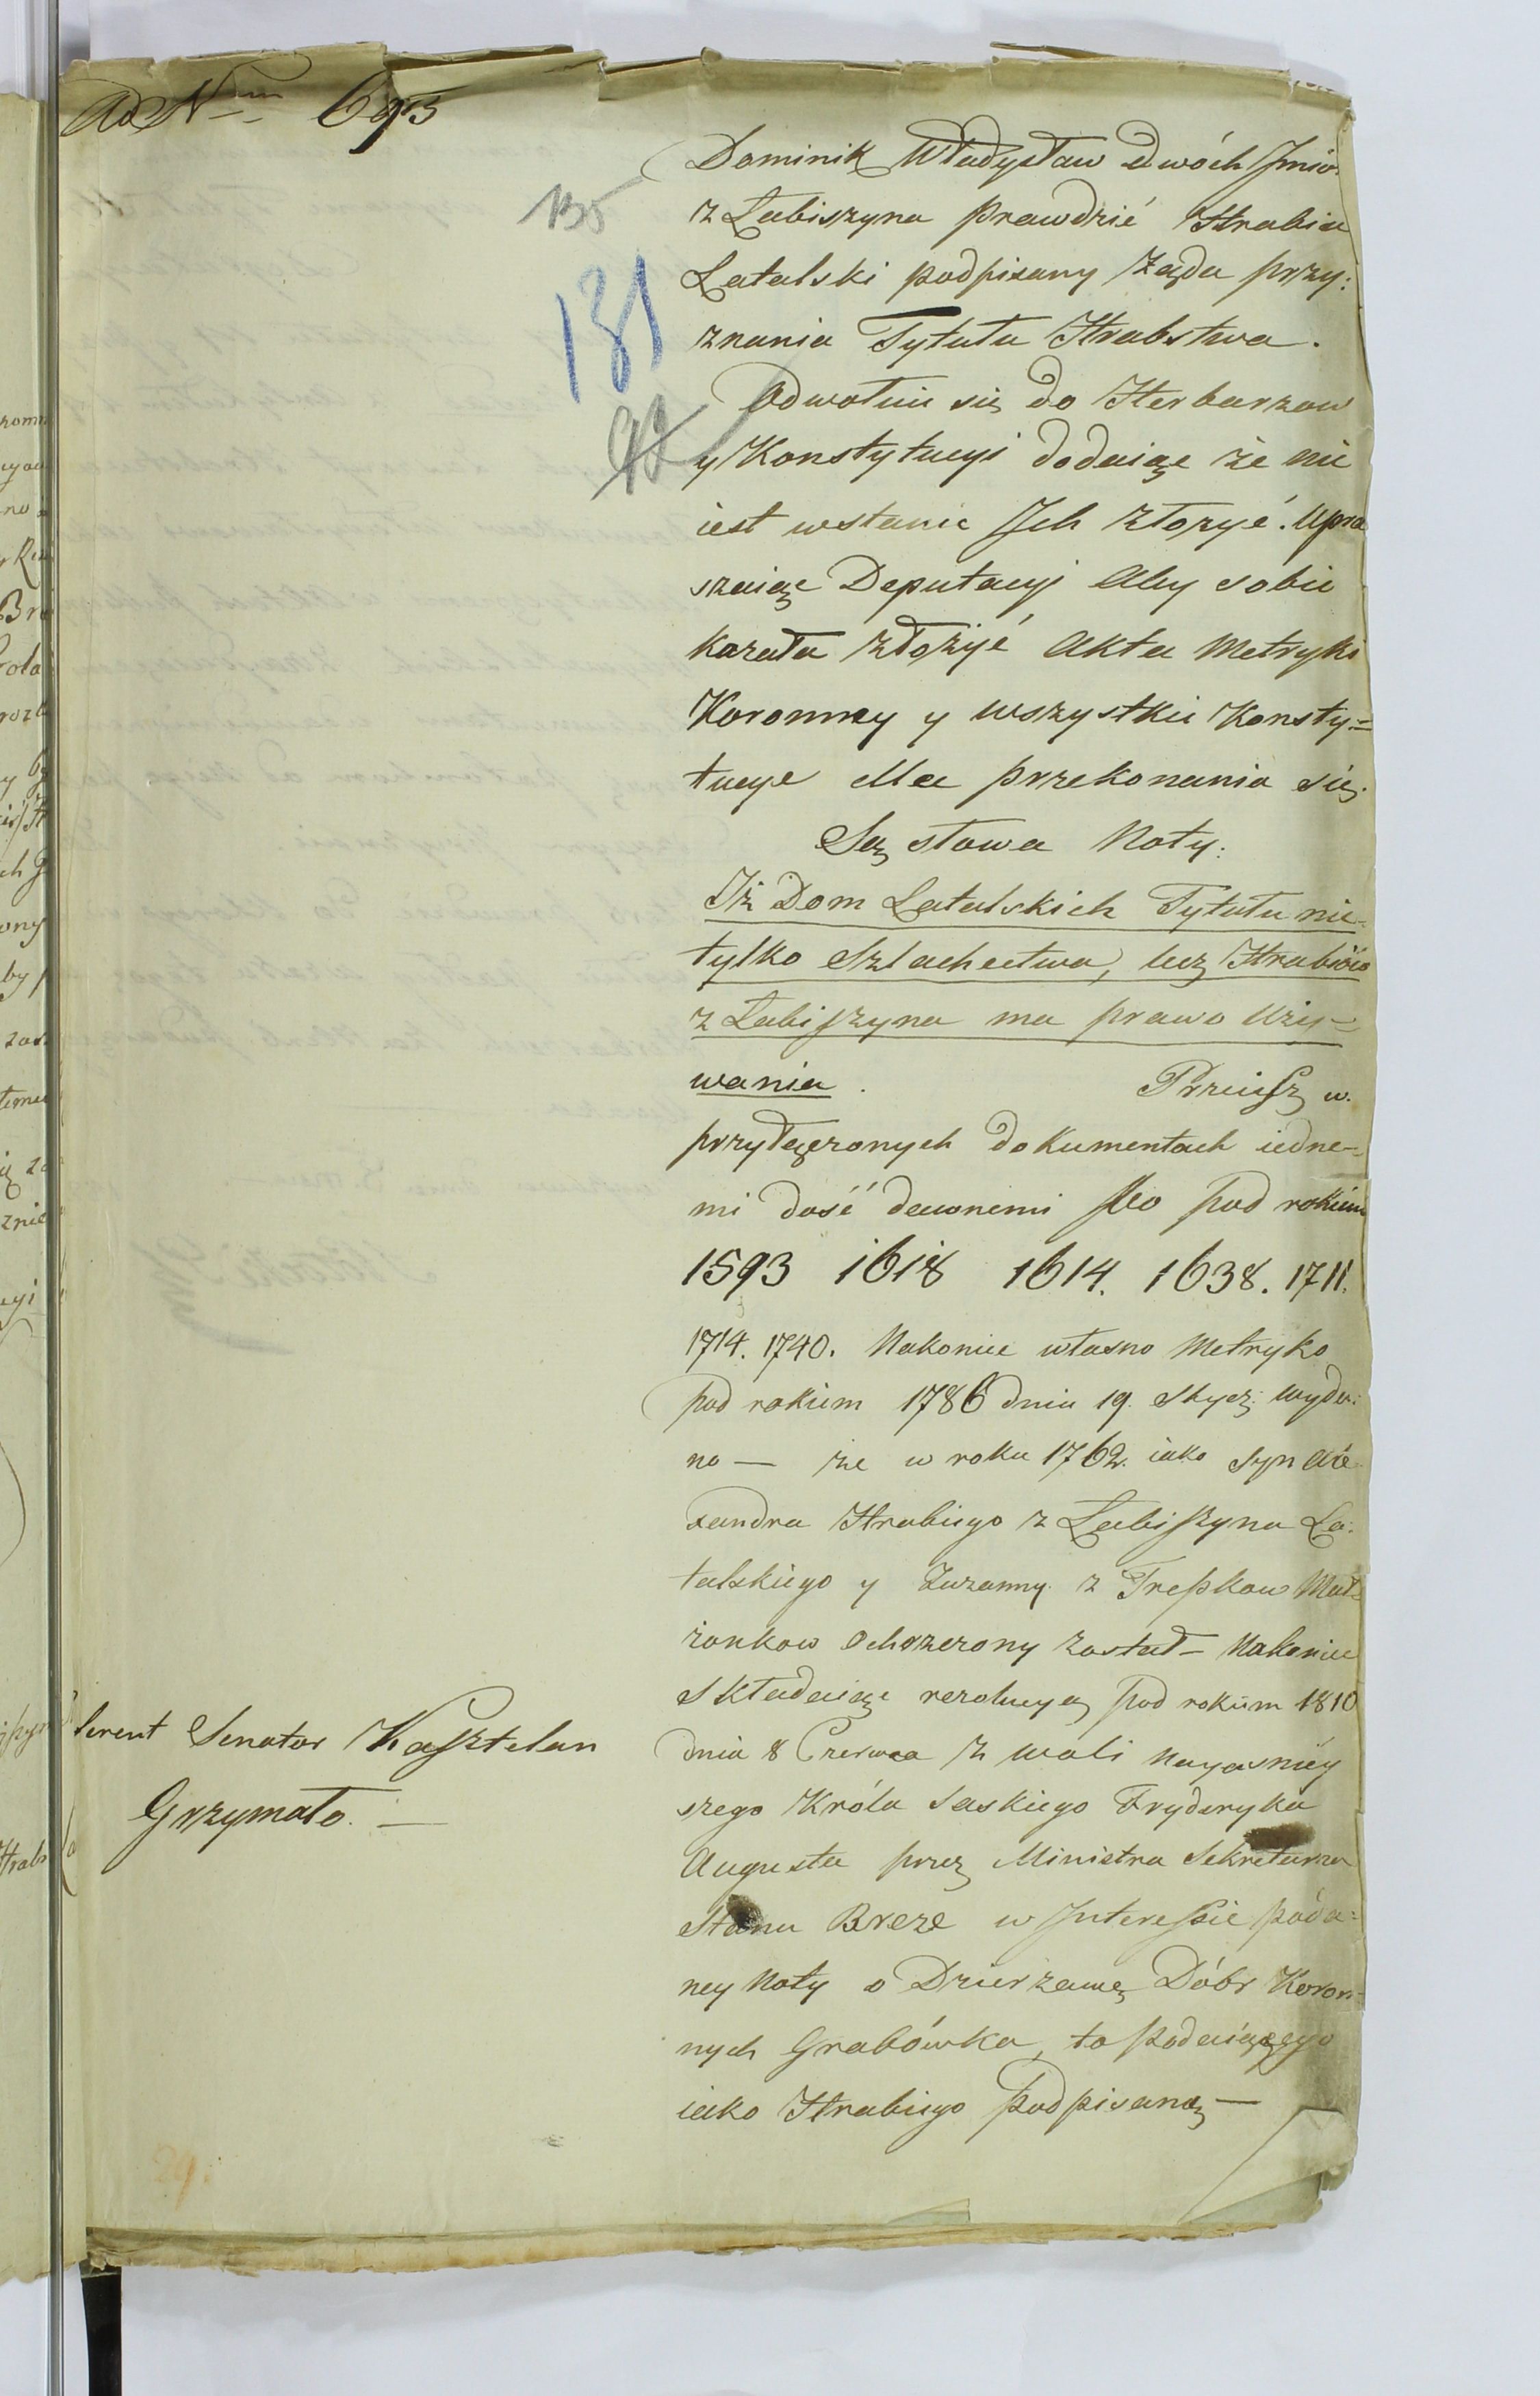 Ad Num 693
135
131
92
Dominik Władysław dwóch Jmio:
z Łabiszyna Prawdzić Hrabia
Latalski podpisany żąda przy:
znania Tytułu Hrabstwa.
Odwołuie się do Herbarzow
y Konstytucyi dodaiąc że nie
iest wstanie Jch złożyć. Upra
szaiąc Deputacyi Aby sobie
kazała złożyć Akta Metryki
Koronney y wszystkie Konsty=
tucye dla przekonania się.
Są słowa Noty:
Jż Dom Latalskich Tytułu nie=
tylko Szlachectwa, lecz Hrabiów
z Łabiszyna ma prawo Uży=
wania. Przeisz w.
przyłączonych dokumentach iedne=
mi dość dawnemi bo pod rokiem
1593 1618 1614. 1638. 1711.
1714. 1740. Nakoniec własno Metryko
pod rokiem 1786 dnia 19. Stycz: wyda:
no — że w roku 1762. iako Syn Ale
xandra Hrabiego z Łabiszyna La:
talskiego y Zuzanny z Trepkow Mał=
żonkow Ochrzczony został — Nakoniec
Składaiąc rezolucyą pod rokiem 1810
dnia 8 Czerwca z woli Nayaśniey
szego Króla Saskiego Fryderyka
Augusta przez Ministra Sekretarza
Stanu Breze w Interessie poda=
ney Noty o Dzierżawę Dóbr Koron=
nych Grabówka, to podaiącego
iako Hrabiego podpisaną —
ferent Senator Kasztelan
Grzymała. —
29.